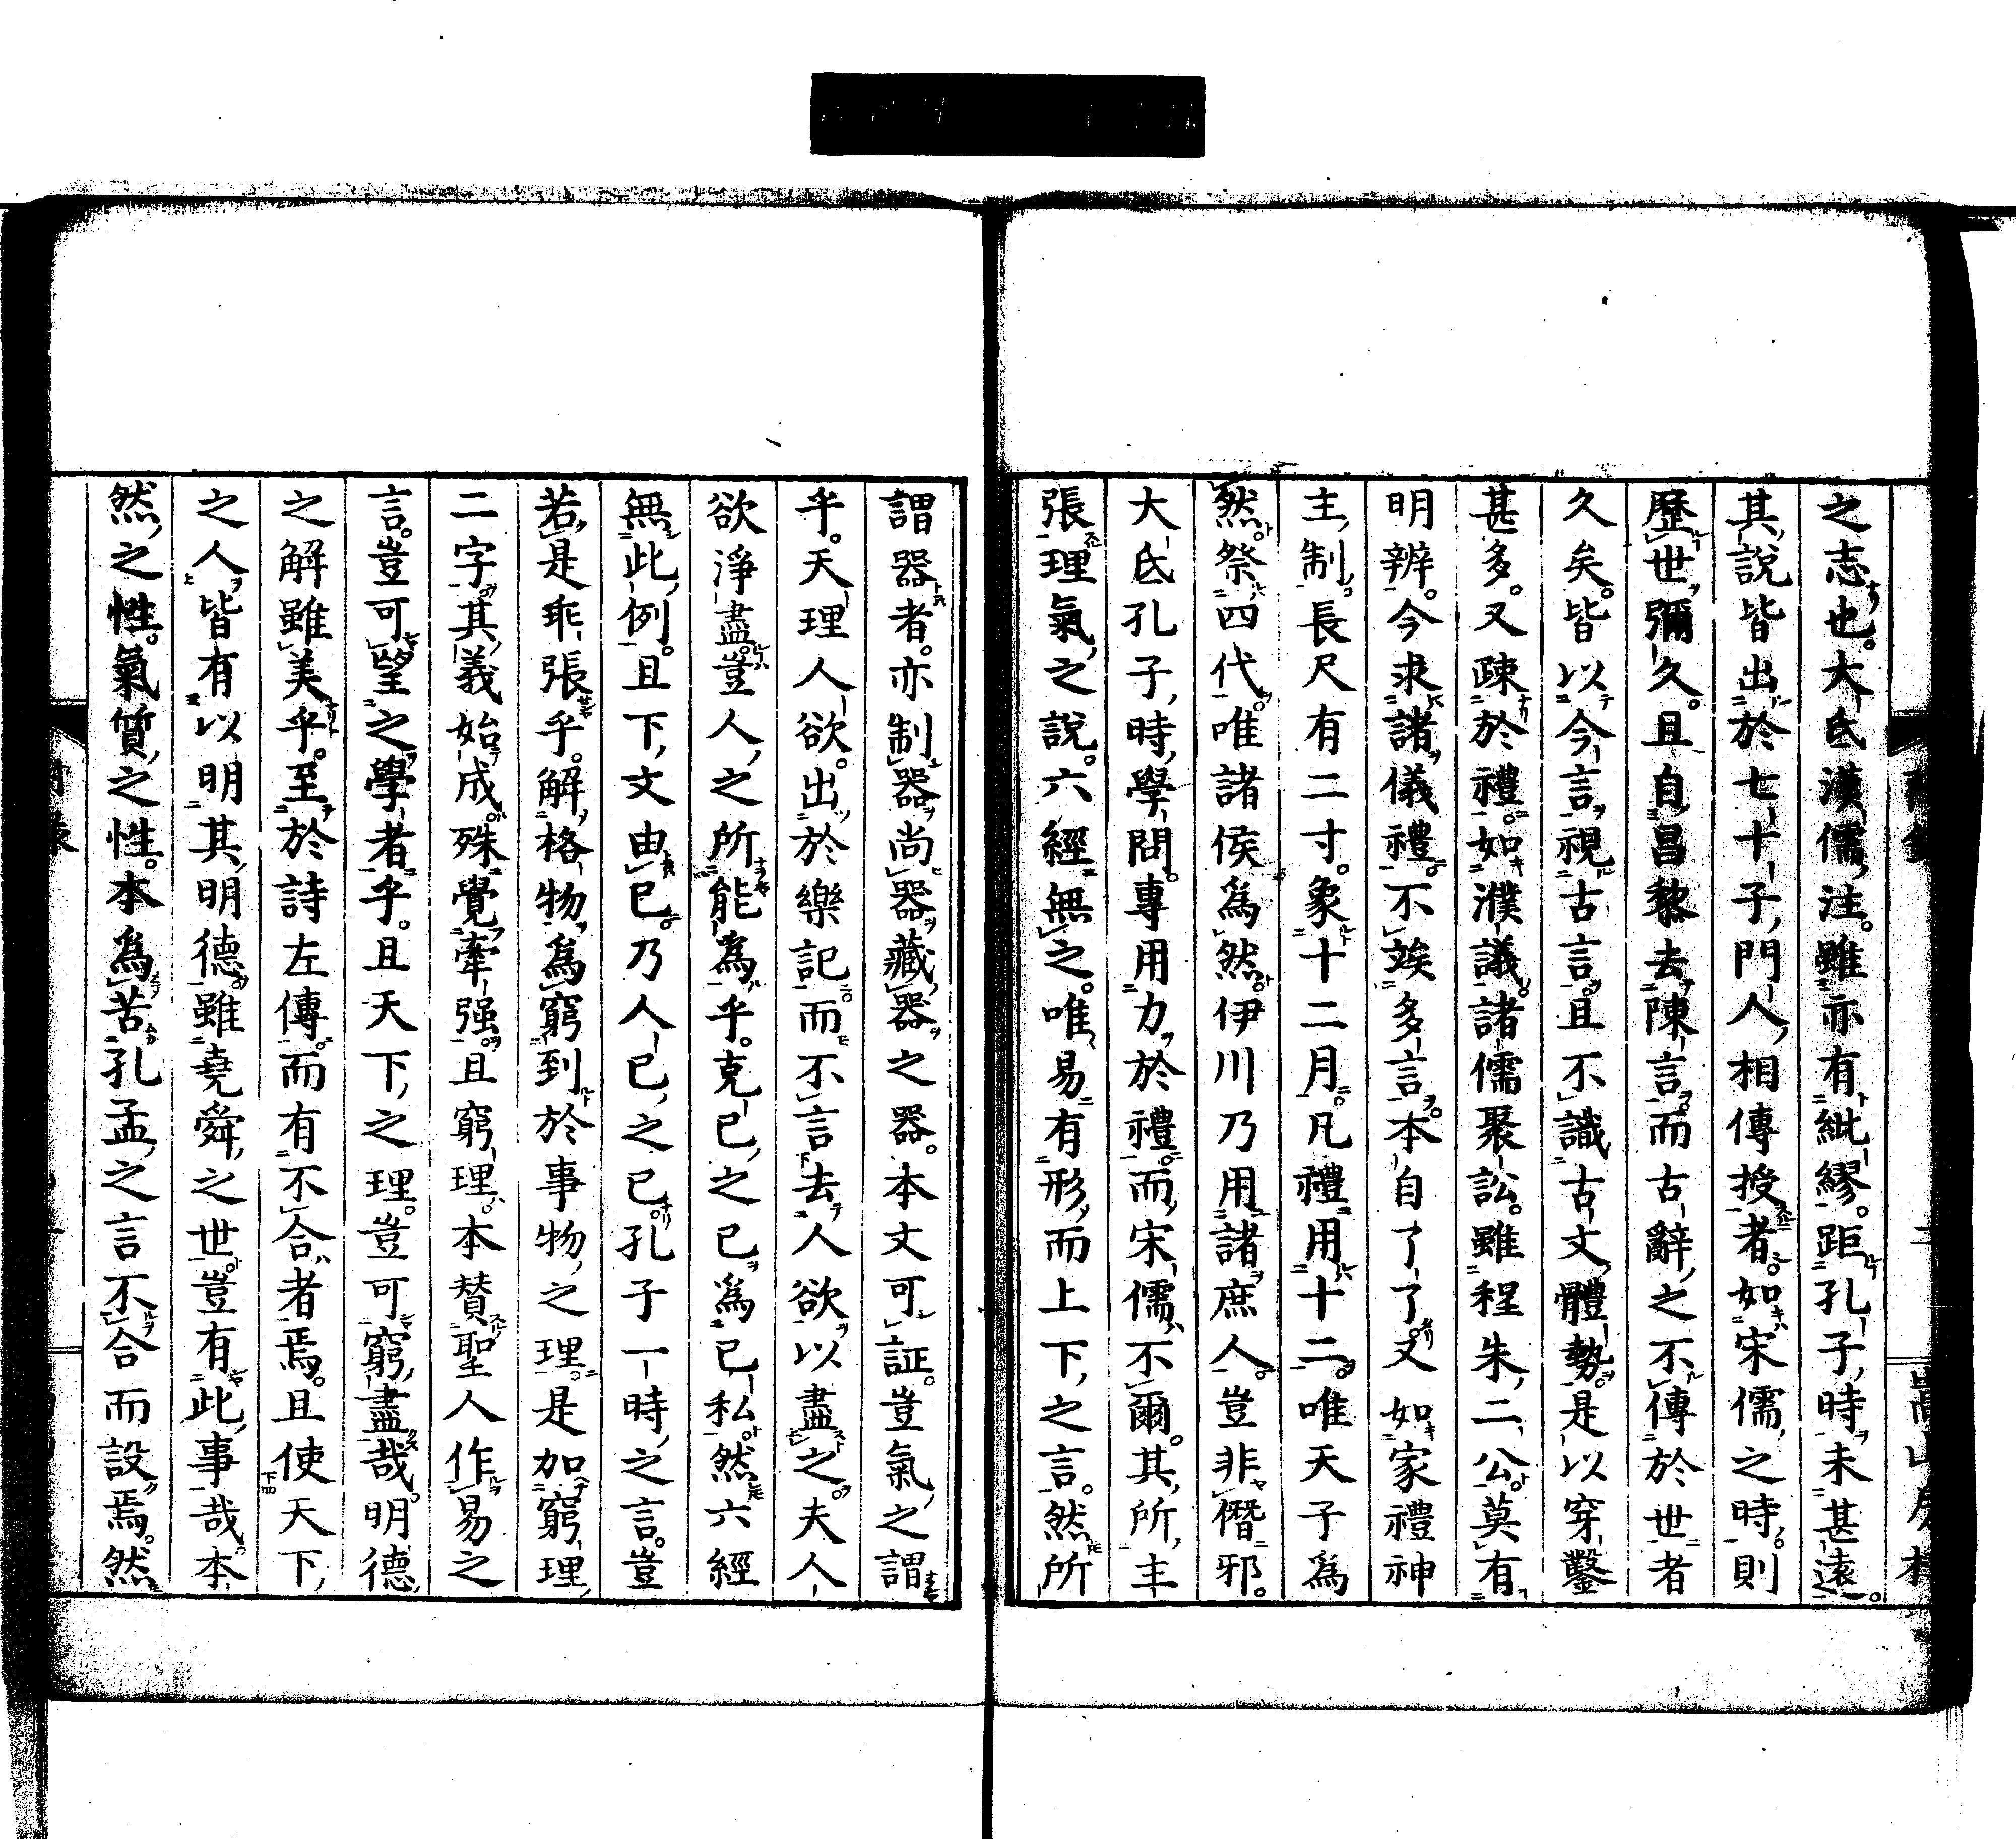 之志也。大氐漢儒注。雖亦有紕繆。距孔子時未甚遠。
其說皆出於七十子門人相傳授者。如宋儒之時。則
歷世彌久。且自昌黎去陳言。而古辭之不傳於世者
久矣。皆以今言視古言。且不識古文體勢。是以穿鑿
甚多。又疎於禮。如濮議。諸儒聚訟。雖程朱二公。莫有
明辨。今求諸儀禮。不竢多言。本自了了。又如家禮神
主制長尺有二寸。象十二月。凡禮用十二。唯天子為
然。祭四代。唯諸侯為然。伊川乃用諸庶人。豈非僭邪。
大氐孔子時學問。專用力於禮。而宋儒不爾。其所主
張理氣之說。六經無之。唯易有形而上下之言。然所
謂器者。亦制器尚器藏器之器。本文可証。豈氣之謂
乎。天理人欲。出於樂記。而不言去人欲以盡之。夫人
欲淨盡。豈人之所能為乎。克己之己為己私。然六經
無此例。且下文由己。乃人己之己。孔子一時之言。豈
若是乖張乎。解格物為窮到於事物之理。是加窮理
二字。其義始成。殊覺牽强。且窮理。本贊聖人作易之
言。豈可望之學者乎。且天下之理。豈可窮盡哉。明德
之解雖美乎。至於詩左傳。而有不合者焉。且使天下
之人皆有以明其明德。雖堯舜之世。豈有此事哉。本
然之性。氣質之性。本為苦孔孟之言不合而設焉。然